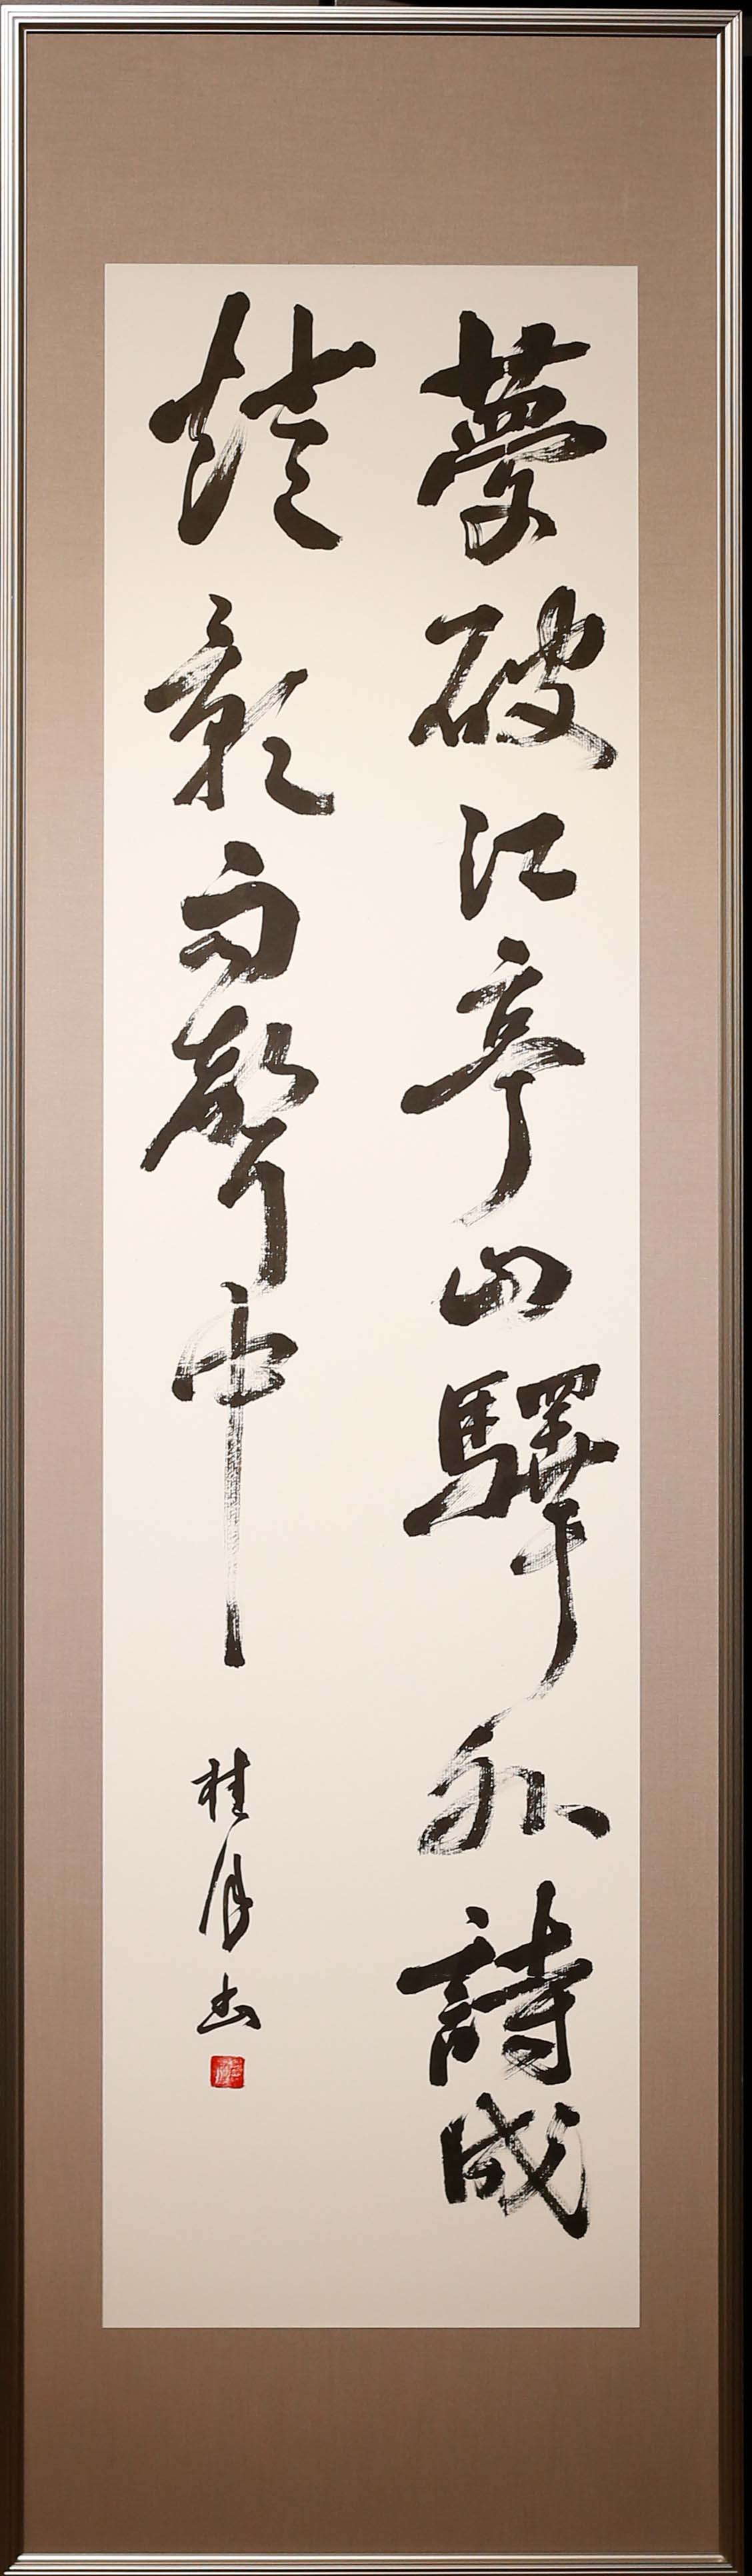 夢破江亭山驛外詩成
燈影雨聲中
桂月書